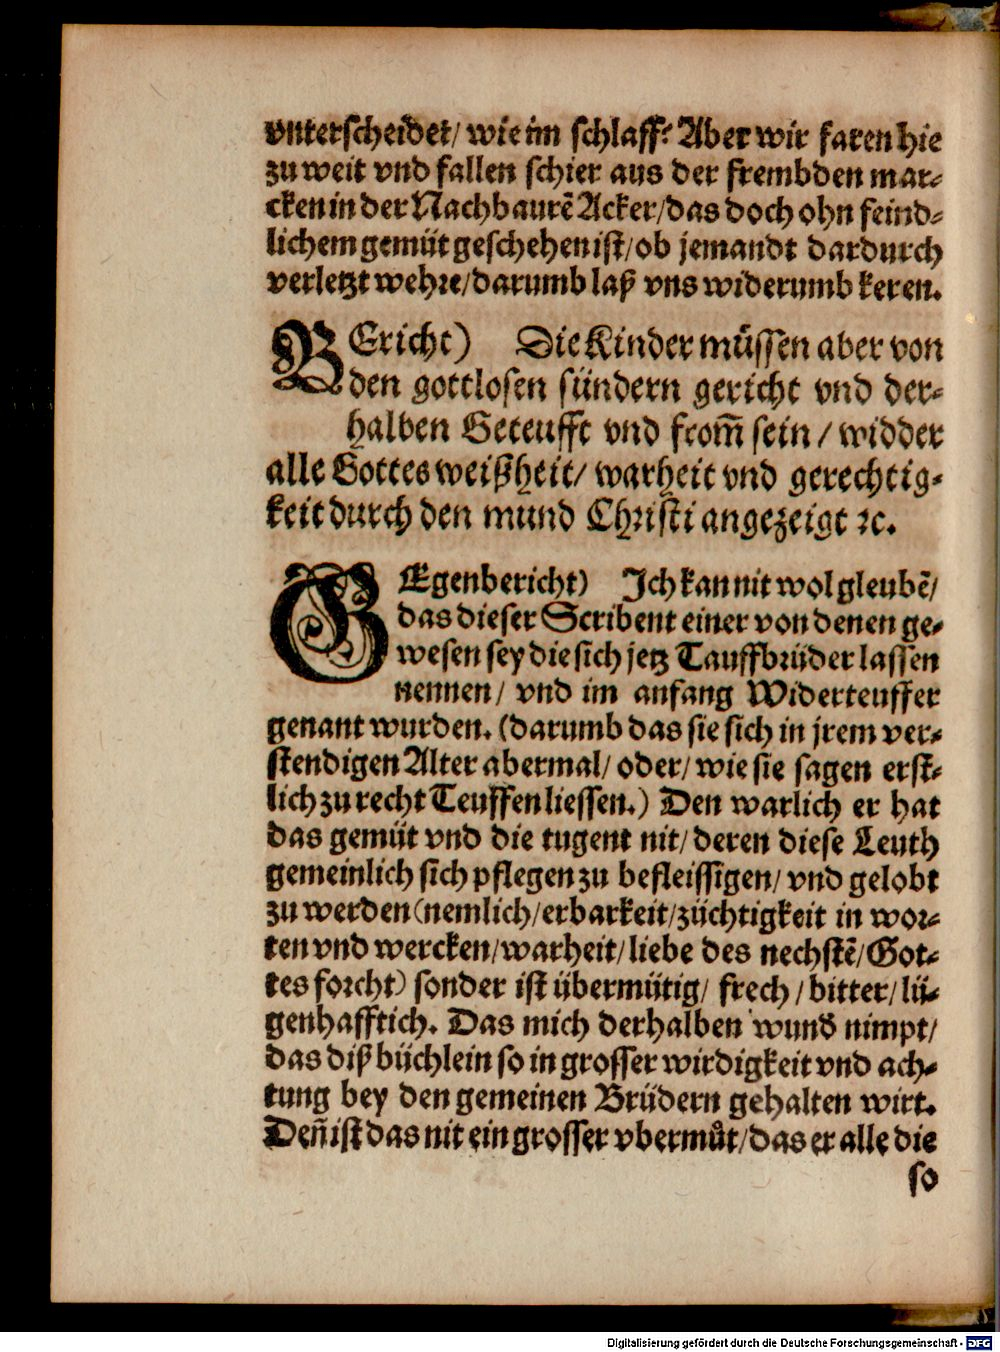 vnterscheidet/ wie im schlaff? Aber wir faren hie
zu weit vnd fallen schier aus der frembden mar⸗
cken in der Nachbaurẽ Acker/das doch ohn feind⸗
lichem gemüt geschehen ist/ob jemandt dardurch
verletzt wehre/darumb laß vns widerumb keren.
BEricht) Die Kinder müssen aber von
den gottlosen sündern gericht vnd der⸗
halben Geteufft vnd from̃ sein / widder
alle Gottes weißheit/ warheit vnd gerechtig⸗
keit durch den mund Christi angezeigt ꝛc.
GEgenbericht) Ich kan nit wol gleubẽ/
das dieser Scribent einer von denen ge⸗
wesen sey die sich jetz Tauffbrüder lassen
nennen/ vnd im anfang Widerteuffer
genant wurden. (darumb das sie sich in jrem ver⸗
stendigen Alter abermal/ oder/ wie sie sagen erst⸗
lich zu recht Teuffen liessen.) Den warlich er hat
das gemüt vnd die tugent nit/ deren diese Leuth
gemeinlich sich pflegen zu befleissigen/ vnd gelobt
zu werden (nemlich/erbarkeit/züchtigkeit in wor⸗
ten vnd wercken/warheit/liebe des nechstẽ/Got⸗
tes forcht) sonder ist übermütig/ frech / bitter/ lü⸗
genhafftich. Das mich derhalben wund nimpt/
das diß büchlein so in grosser wirdigkeit vnd ach⸗
tung bey den gemeinen Brüdern gehalten wirt.
Den̄ ist das nit ein grosser vbermůt/das er alle die
so
Digitalisierung gefördert durch die Deutsche Forschungsgemeinschaft - DFG